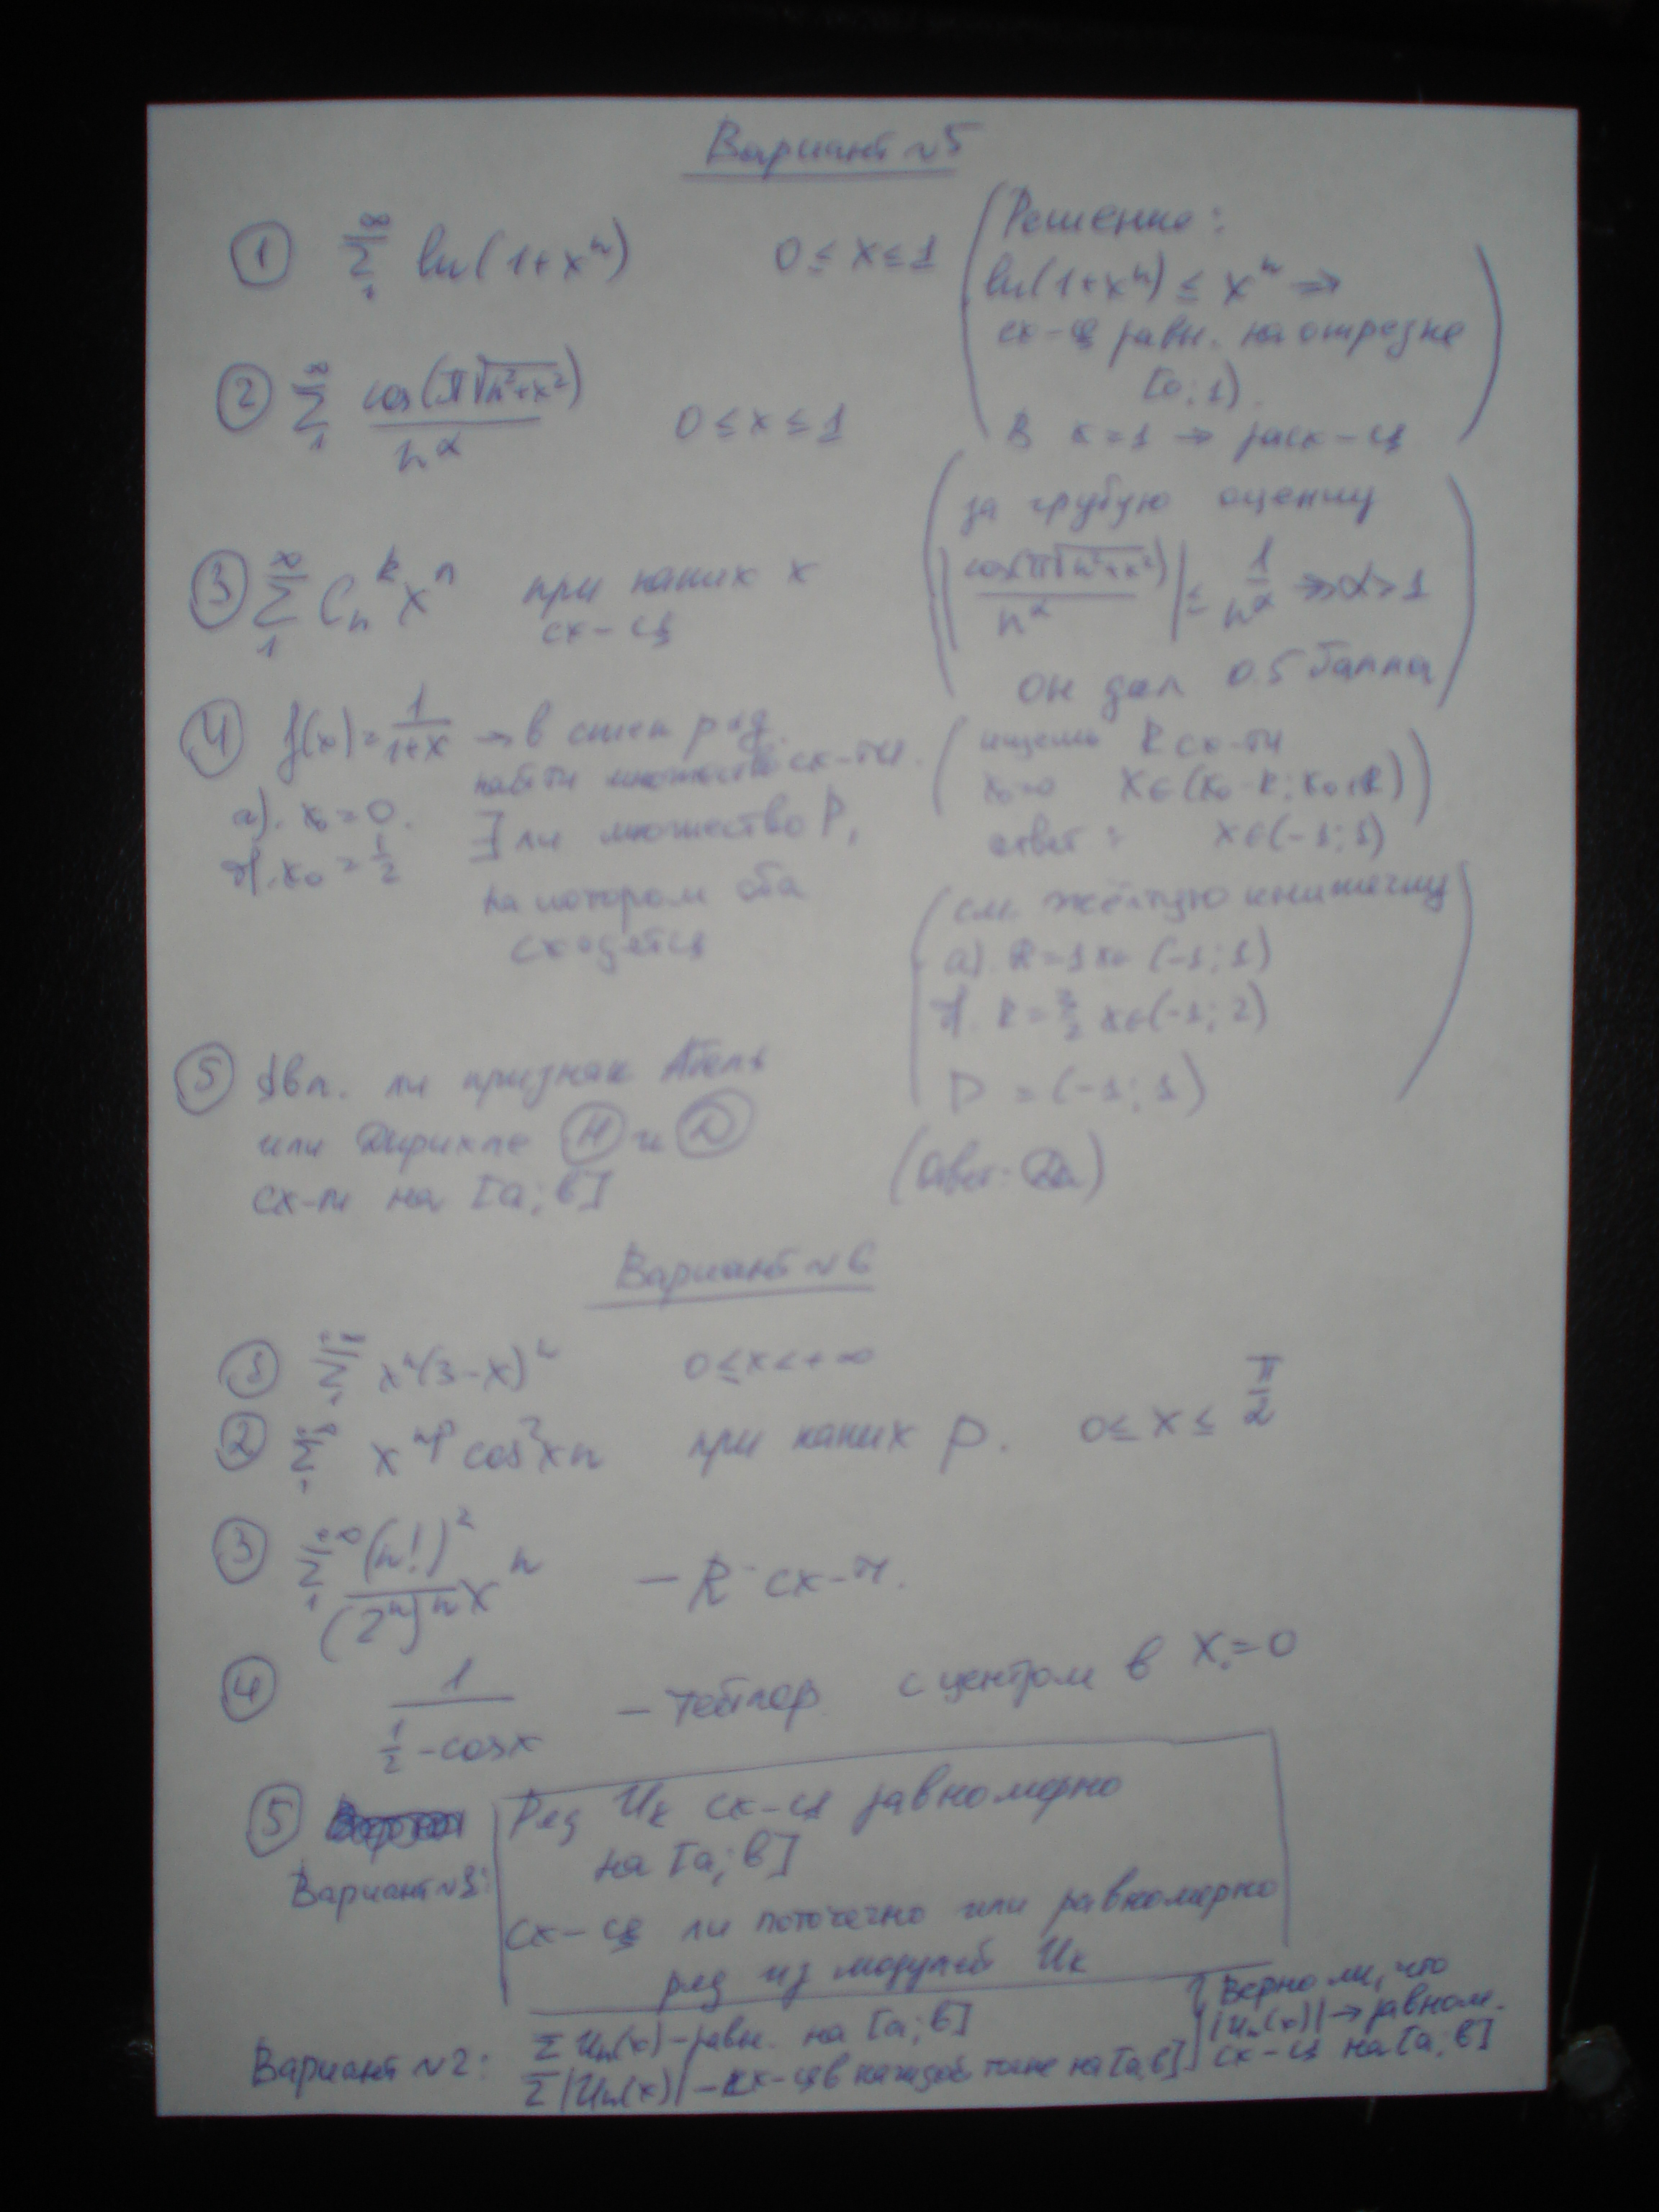 Вариант №5
① ∞ Σ 1 ln(1+xⁿ) 0 ≤ x ≤ 1
(Решение:
ln(1+xⁿ) ≤ xⁿ ⇒
сх-ся равн. на отрезке
[0;1).
В x=1 → расх-ся)
② ∞ Σ 1 cos(π√(n²+x²)) / n^α 0 ≤ x ≤ 1
(за грубую оценку
|cos(π√(n²+x²)) / n^α| ≤ 1/n^α ⇒ α>1
он дал 0.5 балла)
③ ∞ Σ 1 Cₙᵏ xⁿ при каких x
сх-ся
④ f(x) = 1/(1+x) → в степ ряд.
найти множество сх-ти.
а). x₀ = 0. ∃ ли множество P,
б). x₀ = 1/2
на котором оба
сходятся
(ищем R сх-ти
x₀=0 x∈(x₀-R; x₀+R))
ответ: x∈(-1;1)
(см. жёлтую книжечку
а). R=1 x∈(-1;1)
б). R=3/2 x∈(-1;2)
D = (-1;1)
⑤ Явл. ли признак Абеля
или Дирихле Н и D
сх-ти на [a;b]
(Ответ: Да)
Вариант №6
① Σ 1 xⁿ(3-x)ⁿ 0≤x<+∞
② ∞ Σ 1 xⁿᵖ cos²xn при каких p. 0≤ x ≤ π/2
③ +∞ Σ 1 (n!)²/(2ⁿ)ⁿ xⁿ – R сх-ти.
④ 1/(1/2 - cosx) – Тейлор. с центром в x₀=0
⑤
Вариант №1:
Ряд Uₖ сх-ся равномерно
на [a;b]
сх-ся ли поточечно или равномерно
ряд из модулей Uₖ
Вариант №2: Σ Uₙ(x) – равн. на [a;b]
Σ |Uₙ(x)| – сх-ся в каждой точке на [a;b]
Верно ли, что
|Uₙ(x)| → равном.
сх-ся на [a;b]